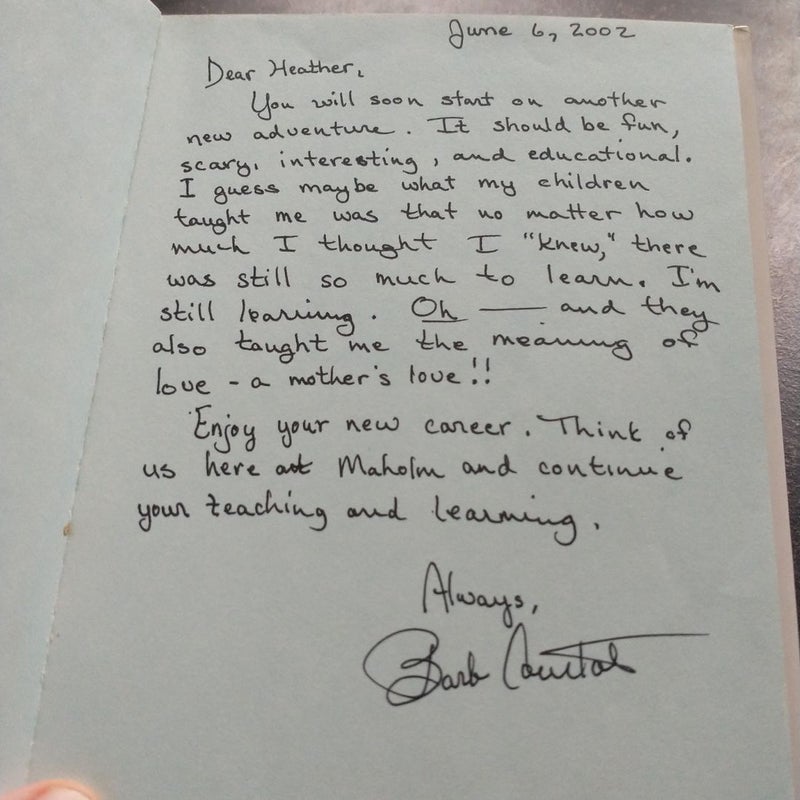 June 6, 2002
Dear Heather,
You will soon start on another
new adventure. It should be fun,
scary, interesting, and educational.
I guess maybe what my children
taught me was that no matter how
much I thought I "knew," there
was still so much to learn. I'm
still learning. Oh — and they
also taught me the meaning of
love - a mother's love!!
Enjoy your new career. Think of
us here at Maholm and continue
your teaching and learning.
Always,
Barb